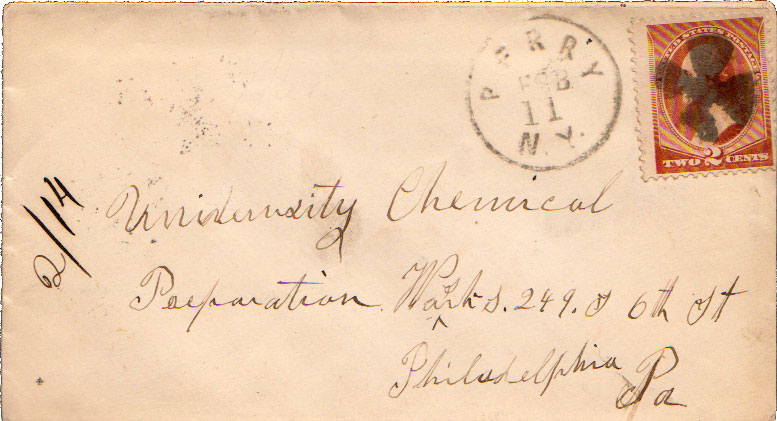 PERRY
FEB
11
N.Y.
UNITED STATES POSTAGE
TWO 2 CENTS
2/14
University Chemical
Preparation Works. 249. S 6th St
Philadelphia
Pa